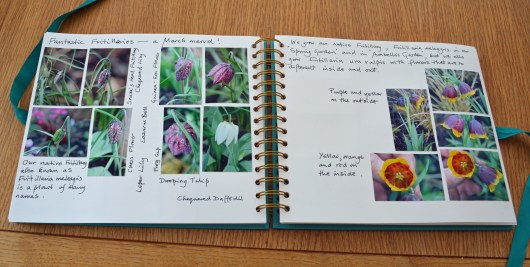 Fantastic Fritillaries — a March marvel!
Snake's Head Fritillary
Chequered Lily
Guinea-hen Flower
Chess Flower
Leper Lily
Lazarus Bell
Frog-cup
Drooping Tulip
Chequered Daffodil
Our native Fritillary
also known as
Fritillaria meleagris
is a plant of Many
names.
We grow our native Fritillary, Fritillaria meleagris in our
Spring Garden and in Annabel's Garden, but we also
grow Fritillaria uva vulpis with flowers that are so
different inside and out.
Purple and yellow
on the outside
Yellow, orange
and red on
the inside.